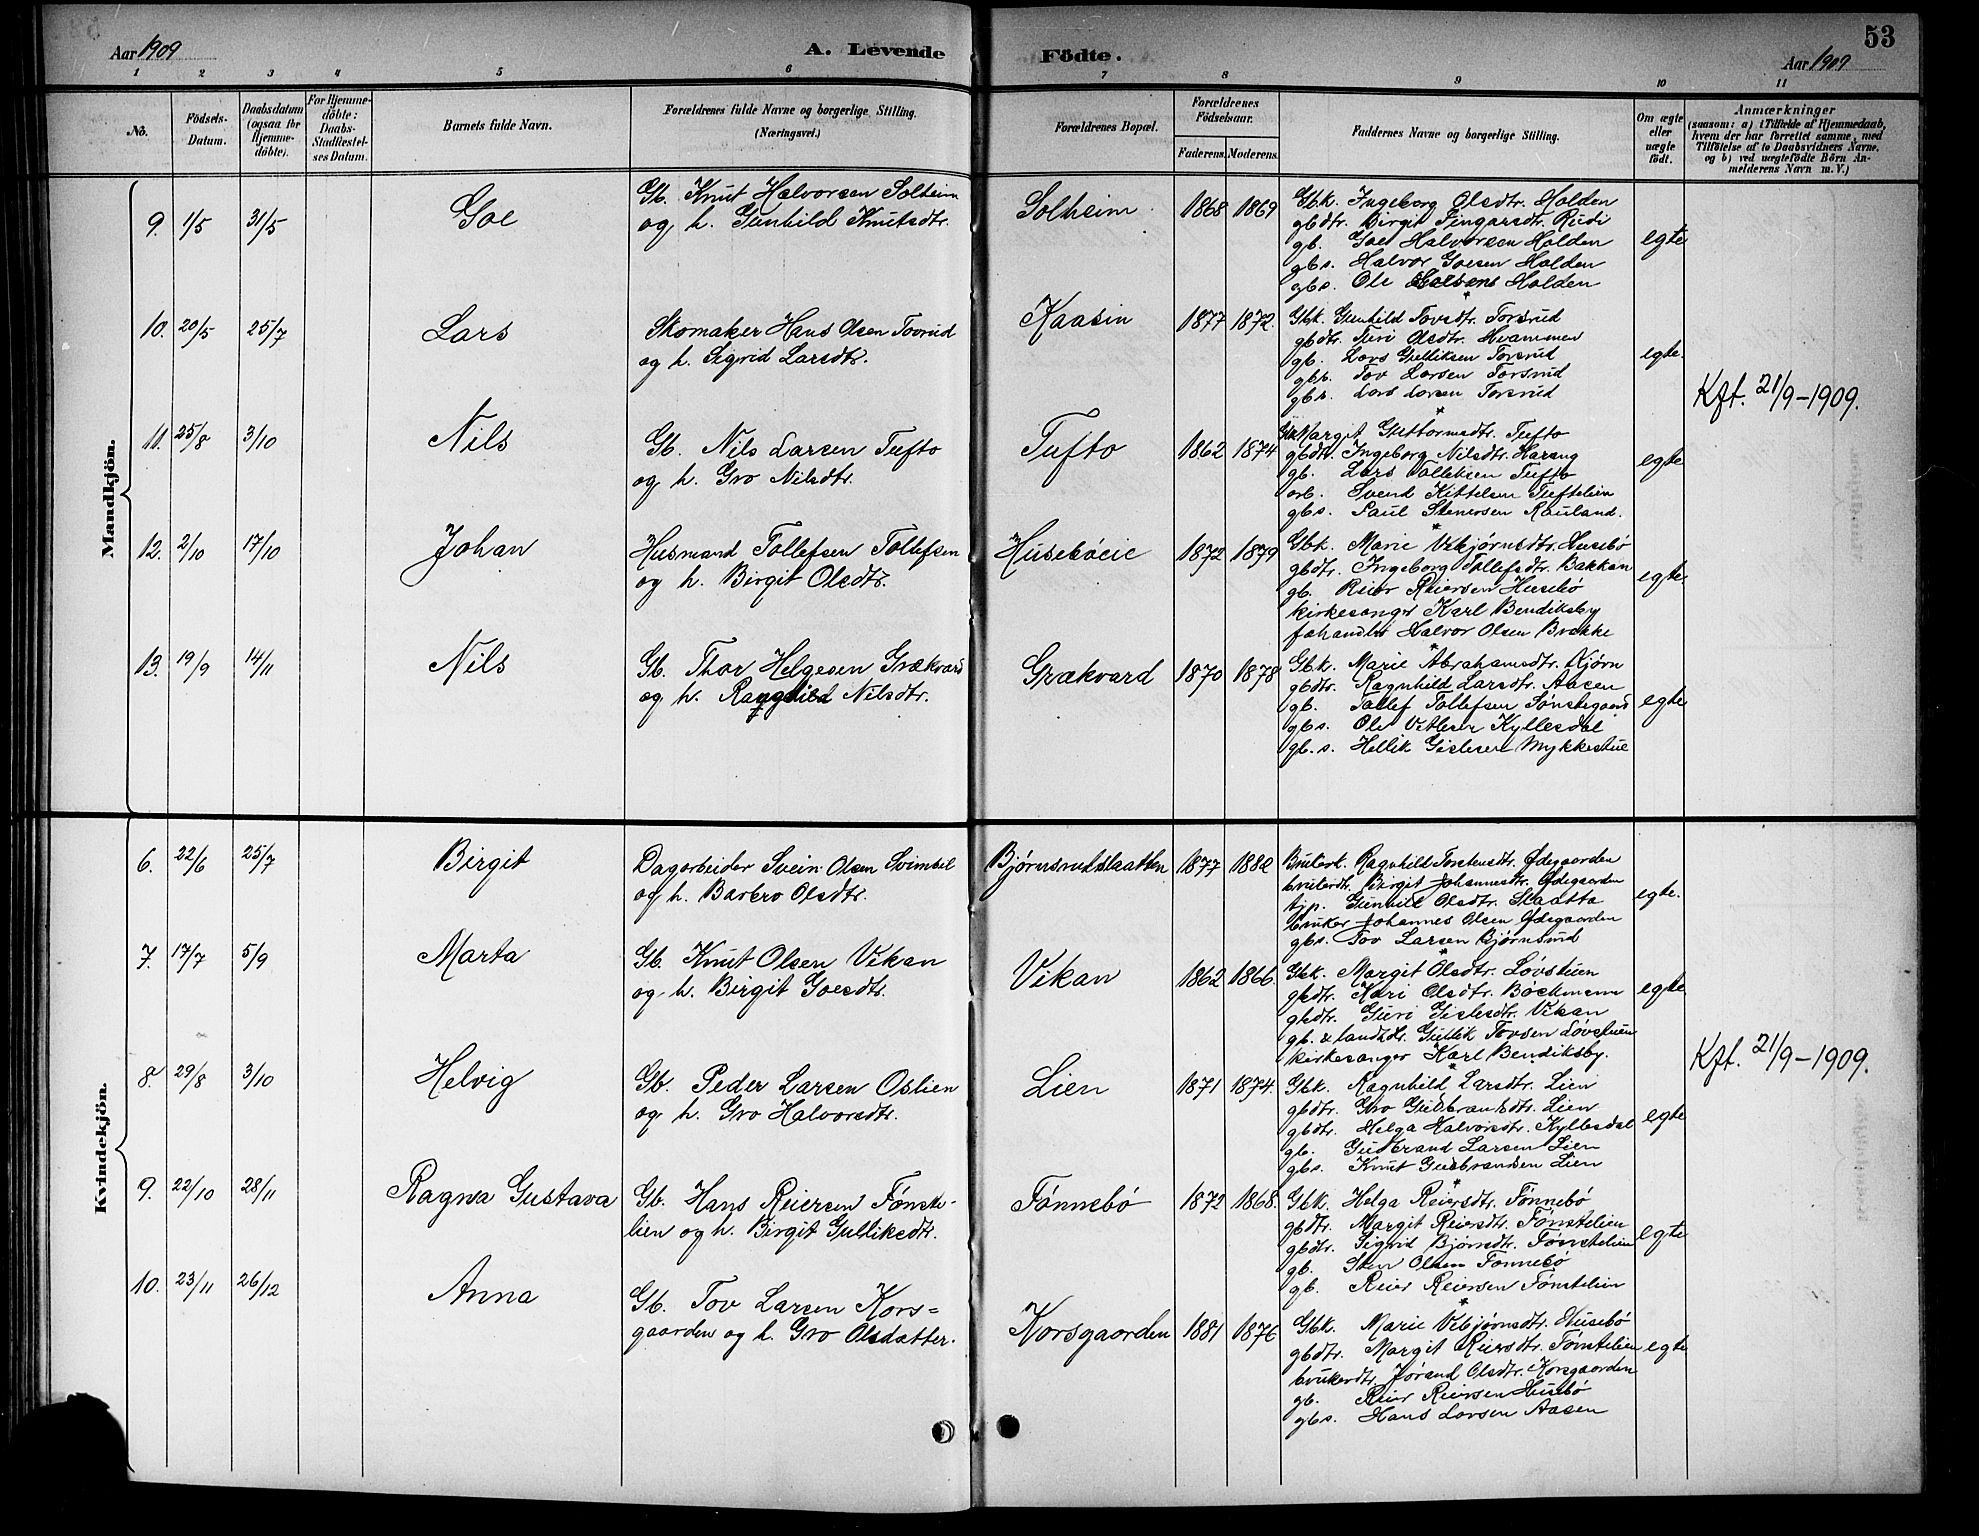 53
Aar 1909
A. Levende
Födte.
Aar 1909
1 2 3 4 5 6 7 8 9 10 11
No.
Födsels-
Datum.
Daabsdatum
(ogsaa for
Hjemme-
döbte).
For Hjemme-
döbte:
Daabs-
Stadfæstel-
ses Datum.
Barnets fulde Navn.
Forældrenes fulde Navne og borgerlige Stilling.
(Næringsvei.)
Forældrenes Bopæl.
Forældrenes
Födselsaar.
Faderens. Moderens.
Faddernes Navne og borgerlige Stilling.
Om ægte
eller
uægte
födt.
Anmærkninger
(saasom: a) i Tilfælde af Hjemmedaab,
hvem der har forrettet samme, med
Tilföielse af to Daabsvidners Navne,
og b) ved uægtefödte Börn An-
melderens Navn m. V.)
Mandkjön.
9. 1/5 31/5 Goe
Gb. Knut Halvorsen Solheim
og h. Gunhild Knutsdtr.
Solheim 1868 1869
Gbk. Ingeborg Olsdtr. Holden
gbdtr. Birgit Fingarsdtr. Rudi
gb. Goe Halvorsen Holden
gbs. Halvor Goesen Holden
gbs. Ole Holden
egte
10. 20/5 25/7 Lars
Skomaker Hans Olsen Toorud
og h. Sigrid Larsdtr.
Kaasin 1877 1872.
Gbk. Gunhild Tovsdtr. Torsrud
gbdtr. Turi Olsdtr. Hvammen
gb. Lars Gulliksen Torsrud
gbs. Tov Larsen Torsrud
gbs. Lars Larsen Torsrud
egte.
Kft. 21/9-1909.
11. 25/8 3/10 Nils
Gb. Nils Larsen Tufto
og h. Gro Nilsdtr.
Tufto 1862 1874
Gbk. Margit Guttormsdtr. Tufto
gbdtr. Ingeborg Nilsdtr. Haraug
gb. Lars Tolleksen Tufto
Svend Kittelsen Tuftelien
gbs. Paul Stenersen Rauland.
egte
12. 2/10 17/10 Johan
Husmand Tollefsen Tollefsen
og h. Birgit Olsdtr.
Husebøeie 1872 1879
Gbk. Marie Vebjørnsdtr. Husebø
gbdtr. Ingeborg Tollefsdtr. Bakkan
gb. Reier Reiersen Husebø
kirkesanger Karl Bendiksby
fehandler Halvor Olsen Brekke
egte.
13. 19/9 14/11 Nils
Gb. Thor Helgesen Grækvard
og h. Ranghild Nilsdtr.
Grækvard 1870 1878
Gbk. Marie Abrahamsdtr. Kjørn
gbdtr. Ragnhild Larsdtr. Aasen
gb. Tollef Tollefsen Sønstegaard
gbs. Ole Vetlesen Kyllesdal
gb.s. Hellik Gislesen Mykkestue
egte
Kvindekjön.
6. 22/6 25/7 Birgit
Dagarbeider Svein Olsen Svimbil
og h. Barbro Olsdtr.
Bjørnsrudslaatten 1877 1882
Brukerk. Ragnhild Torstensdtr. Ødegaarden
brukerdtr. Birgit Johannesdtr. Ødegaarden
tjp. Gunhild Olsdtr. Slaatta
bruker Johannes Olsen Ødegaarden
gbs. Tov Larsen Bjørnsrud
egte.
7. 17/7 5/9 Marta
Gb. Knut Olsen Vikan
og h. Birgit Goesdtr.
Vikan 1862 1866.
Gbk. Margit Olsdtr. Løvstuen
gbdtr. Kari Olsdtr. Bøckmann
gbdtr. Guri Gislesdtr. Vikan
gb. & landhdr. Gullik Tovsen Løvstuen
kirkesanger Karl Bendiksby.
egte.
8. 29/8 3/10 Helvig
Gb. Peder Larsen Oslien
og h. Gro Halvorsdtr.
Lien 1871 1874.
Gbk. Ragnhild Larsdtr. Lien
gbdtr. Gro Gudbrandsdtr. Lien
gbdtr. Helga Halvorsdtr. Kyllesdal
gb. Gudbrand Larsen Lien
gbs. Knut Gudbrandsen Lien
egte
Kft. 21/9-1909.
9. 22/10 28/11 Ragna Gustava
Gb. Hans Reiersen Fønste-
lien og h. Birgit Gulliksdtr.
Fønnebø 1872 1868.
Gbk. Helga Reiersdtr. Fønnebø
gbdtr. Margit Reiersdtr. Fønstelien
gbdtr. Sigrid Bjørnsdtr. Fønstelien
gb. Sten Olsen Fønnebø
gb. Reier Reiersen Fønstelien
egte
10. 23/11 26/12 Anna
Gb. Tov Larsen Kors=
gaarden og h. Gro Olsdatter.
Korsgaarden 1881 1876
Gbk. Marie Vebjørnsdtr. Husebø
gbdtr. Margit Reiersdtr. Fønstelien
brukerdtr. Jørand Olsdtr. Korsgaarden
gb. Reier Reiersen Husebø
gbs. Hans Larsen Aasen
egte